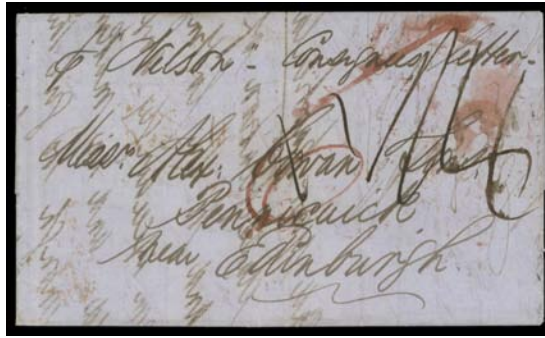 p Nelson - Consignees letter -
Messrs. Alex. Cowan & Sons
Pennicuick
Near Edinburgh.